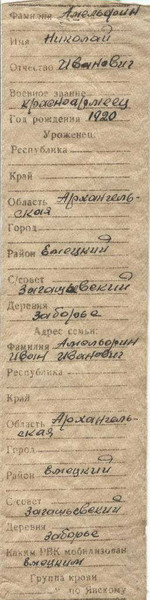 Фамилия Амельфин
Имя Николай
Отчество Иванович
Военное звание
красноармеец
Год рождения 1920
Уроженец:
Республика
Край
Область Архангель-
ская
Город
Район Емецкий
С/совет
Загацьевский
Деревня
Заборье
Адрес семьи:
Фамилия Амельфин
Иван Иванович
Республика
Край
Область Архангель-
ская
Город
Район Емецкий
С совет
Загацьевский
Деревня
Заборье
Каким РВК мобилизован
Емецким
Группа крови
по Янскому